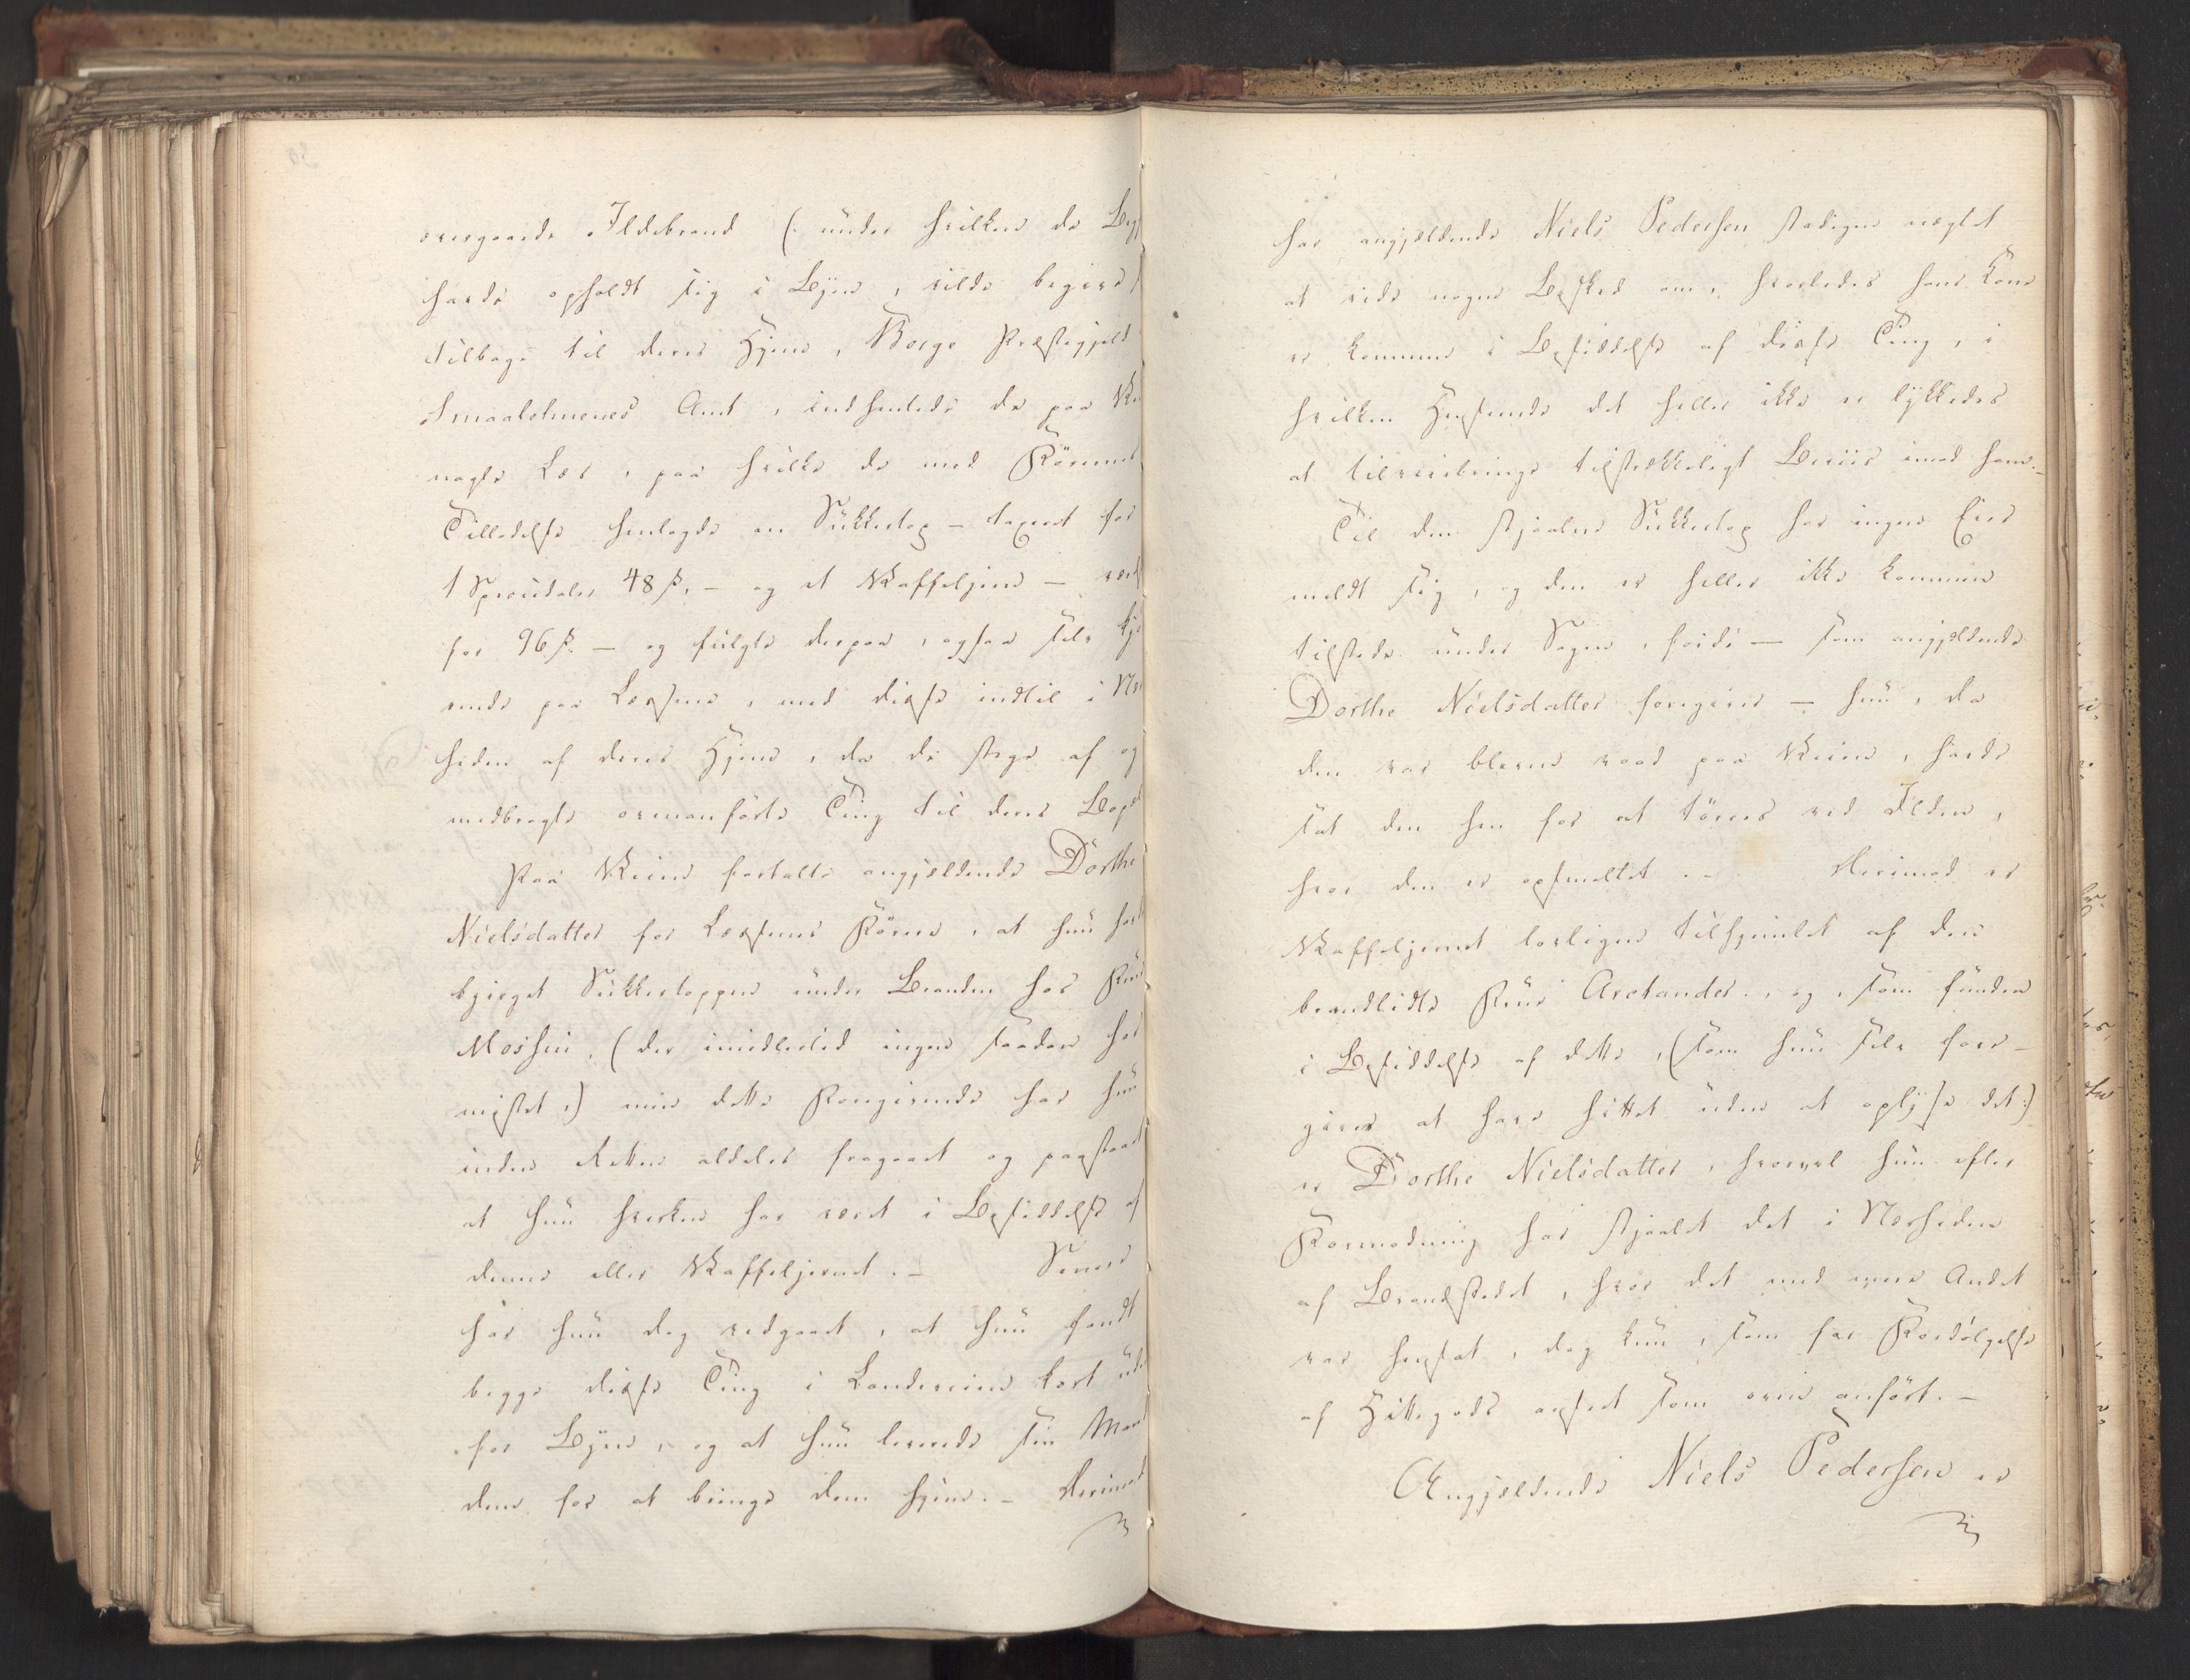 overgaaede Ildebrand (: under hvilken de
havde opholdt sig i Byen, vilde begive
tilbage til deres Hjem, Borge Præstegjeld
Smaalehnenes Amt, indhentede de paa
nogle Læs, paa hvilke de med Kørernes
Tilladelse henlagde en Sukkertop – taxeret for
1 Speciedaler 48 ß. – og et Vaffeljern – værd
for 96 ß. – og fulgte derpaa, ogsaa selv
ende paa Læssene, med disse indtil i
heden af deres Hjem, da de stege af og
medbragte ovenanførte Ting til deres Bopæl
Paa Veien fortalte angjældende Dorthe
Nielsdatter for Læssenes Kører, at hun
bjerget Sukkertoppen under Branden hos
Mossin, (der imidlertid ingen saadan har
mistet,) men dette Foregivende har hun
inden Retten aldeles fragaaet og paastaaet
at hun hverken har været i Besiddelse af
denne eller Vaffeljernet. – Senere
har hun dog vedgaaet, at hun fandt
begge disse Ting i Landeveien kort
for Byen, og at hun leverede sin
dem for at bringe dem hjem. – Derimod
har angjældende Niels Pedersen stadigen nægtet
at vide nogen Besked om, hvorledes hans Kone
er kommen i Besiddelse af disse Ting, i
hvilken Henseende det heller ikke er lykkedes
at tilveiebringe tilstrækkeligt Beviis imod ham. –
Til den stjaalne Sukkertop har ingen Eier
meldt sig, og den er heller ikke kommen
tilstede under Sagen, fordi – som angjældende
Dorthe Nielsdatter foregiver – hun, da
den var bleven vaad paa Veien, havde
sat den hen for at tørres ved Ilden,
hvor den er opsmeltet. – Derimod er
Vaffeljernet lovligen tilhjemlet af den
brandlidte Arctander, og, som funden
i Besiddelse af dette, (som hun selv fore-
giver at have hittet uden at oplyse det:)
er Dorthe Nielsdatter, hvorvel hun efter
Formodning har stjaalet det i Nærheden
af Brandstedet, hvor det med mere Andet
var hensat, dog kun, som for Fordølgelse
af Hittegods anseet som oven anført. –
Angjældende Niels Pedersen er